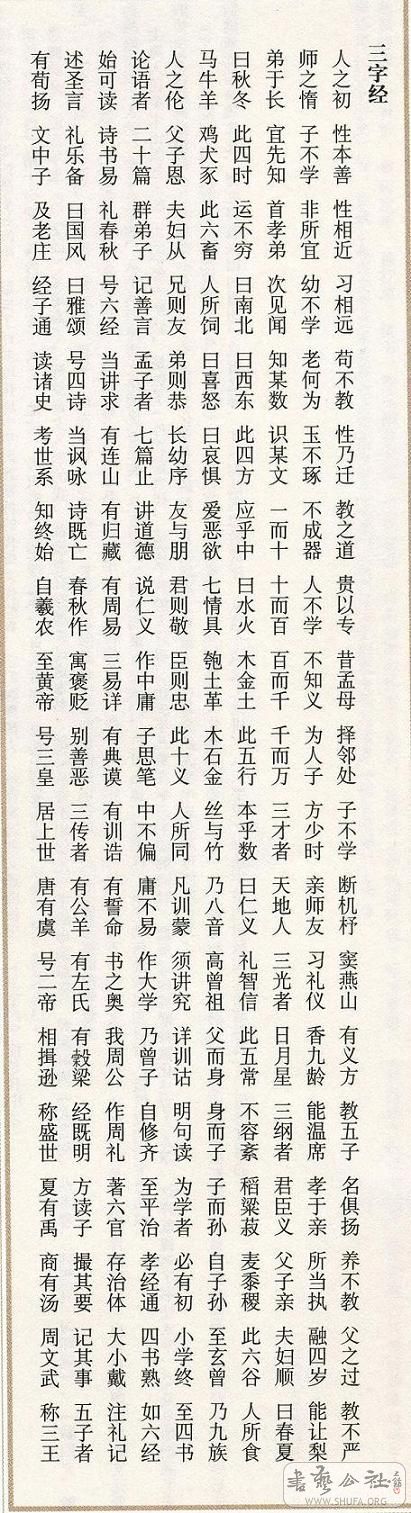 三字经
人之初 性本善 性相近 习相远 苟不教 性乃迁 教之道 贵以专 昔孟母 择邻处 子不学 断机杼 窦燕山 有义方 教五子 名俱扬 养不教 父之过 教不严
师之惰 子不学 非所宜 幼不学 老何为 玉不琢 不成器 人不学 不知义 为人子 方少时 亲师友 习礼仪 香九龄 能温席 孝于亲 所当执 融四岁 能让梨
弟于长 宜先知 首孝弟 次见闻 知某数 识某文 一而十 十而百 百而千 千而万 三才者 天地人 三光者 日月星 三纲者 君臣义 父子亲 夫妇顺 曰春夏
曰秋冬 此四时 运不穷 曰南北 曰西东 此四方 应乎中 曰水火 木金土 此五行 本乎数 曰仁义 礼智信 此五常 不容紊 稻粱菽 麦黍稷 此六谷 人所食
马牛羊 鸡犬豕 此六畜 人所饲 曰喜怒 曰哀惧 爱恶欲 七情具 匏土革 木石金 丝与竹 乃八音 高曾祖 父而身 身而子 子而孙 自子孙 至玄曾 乃九族
人之伦 父子恩 夫妇从 兄则友 弟则恭 长幼序 友与朋 君则敬 臣则忠 此十义 人所同 凡训蒙 须讲究 详训诂 明句读 为学者 必有初 小学终 至四书
论语者 二十篇 群弟子 记善言 孟子者 七篇止 讲道德 说仁义 作中庸 子思笔 中不偏 庸不易 作大学 乃曾子 自修齐 至平治 孝经通 四书熟 如六经
始可读 诗书易 礼春秋 号六经 当讲求 有连山 有归藏 有周易 三易详 有典谟 有训诰 有誓命 书之奥 我周公 作周礼 著六官 存治体 大小戴 注礼记
述圣言 礼乐备 曰国风 曰雅颂 号四诗 当讽咏 诗既亡 春秋作 寓褒贬 别善恶 三传者 有公羊 有左氏 有穀梁 经既明 方读子 撮其要 记其事 五子者
有荀扬 文中子 及老庄 经子通 读诸史 考世系 知终始 自羲农 至黄帝 号三皇 居上世 唐有虞 号二帝 相揖逊 称盛世 夏有禹 商有汤 周文武 称三王
書藝公社
WWW.SHUFA.ORG